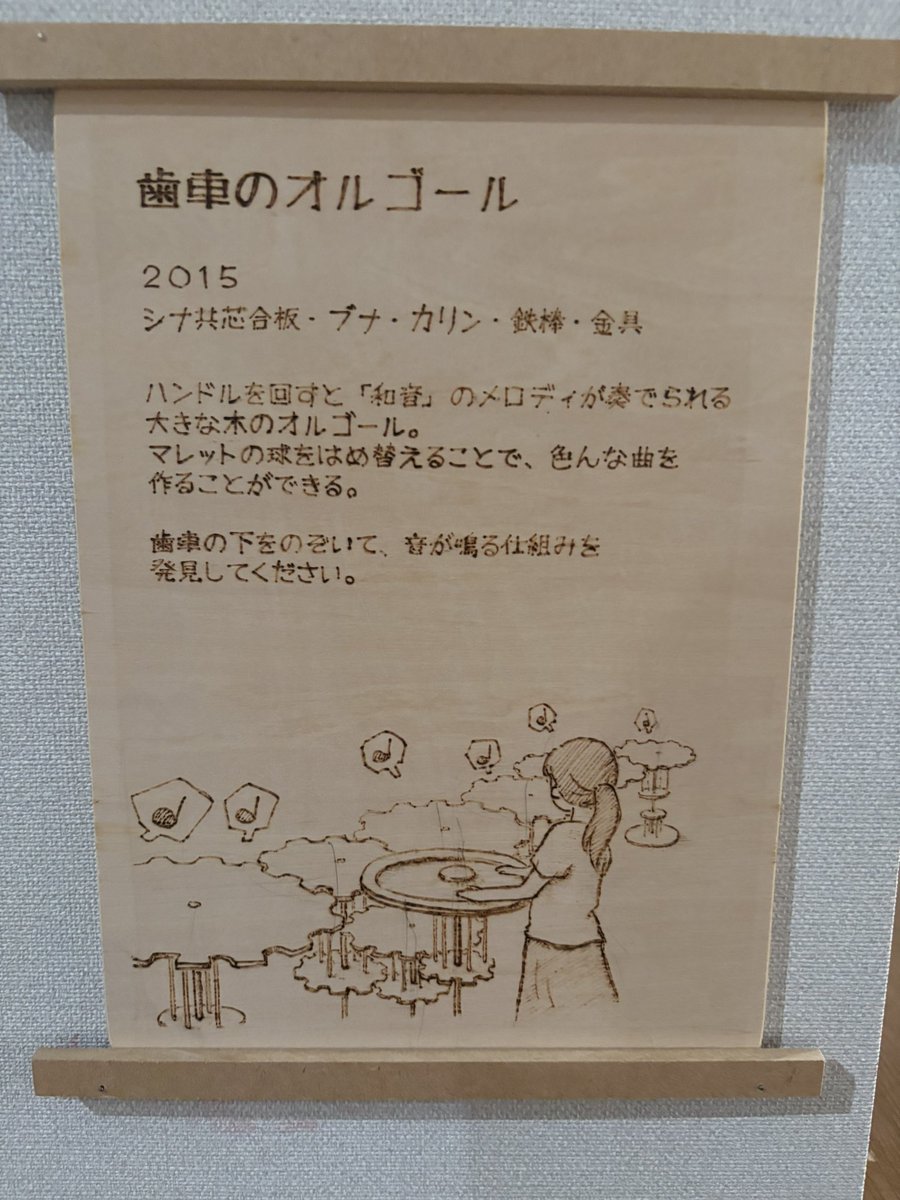 歯車のオルゴール
2015
シナ共芯合板・ブナ・カリン・鉄棒・金具
ハンドルを回すと「和音」のメロディが奏でられる
大きな木のオルゴール。
マレットの球をはめ替えることで、色んな曲を
作ることができる。
歯車の下をのぞいて、音が鳴る仕組みを
発見してください。